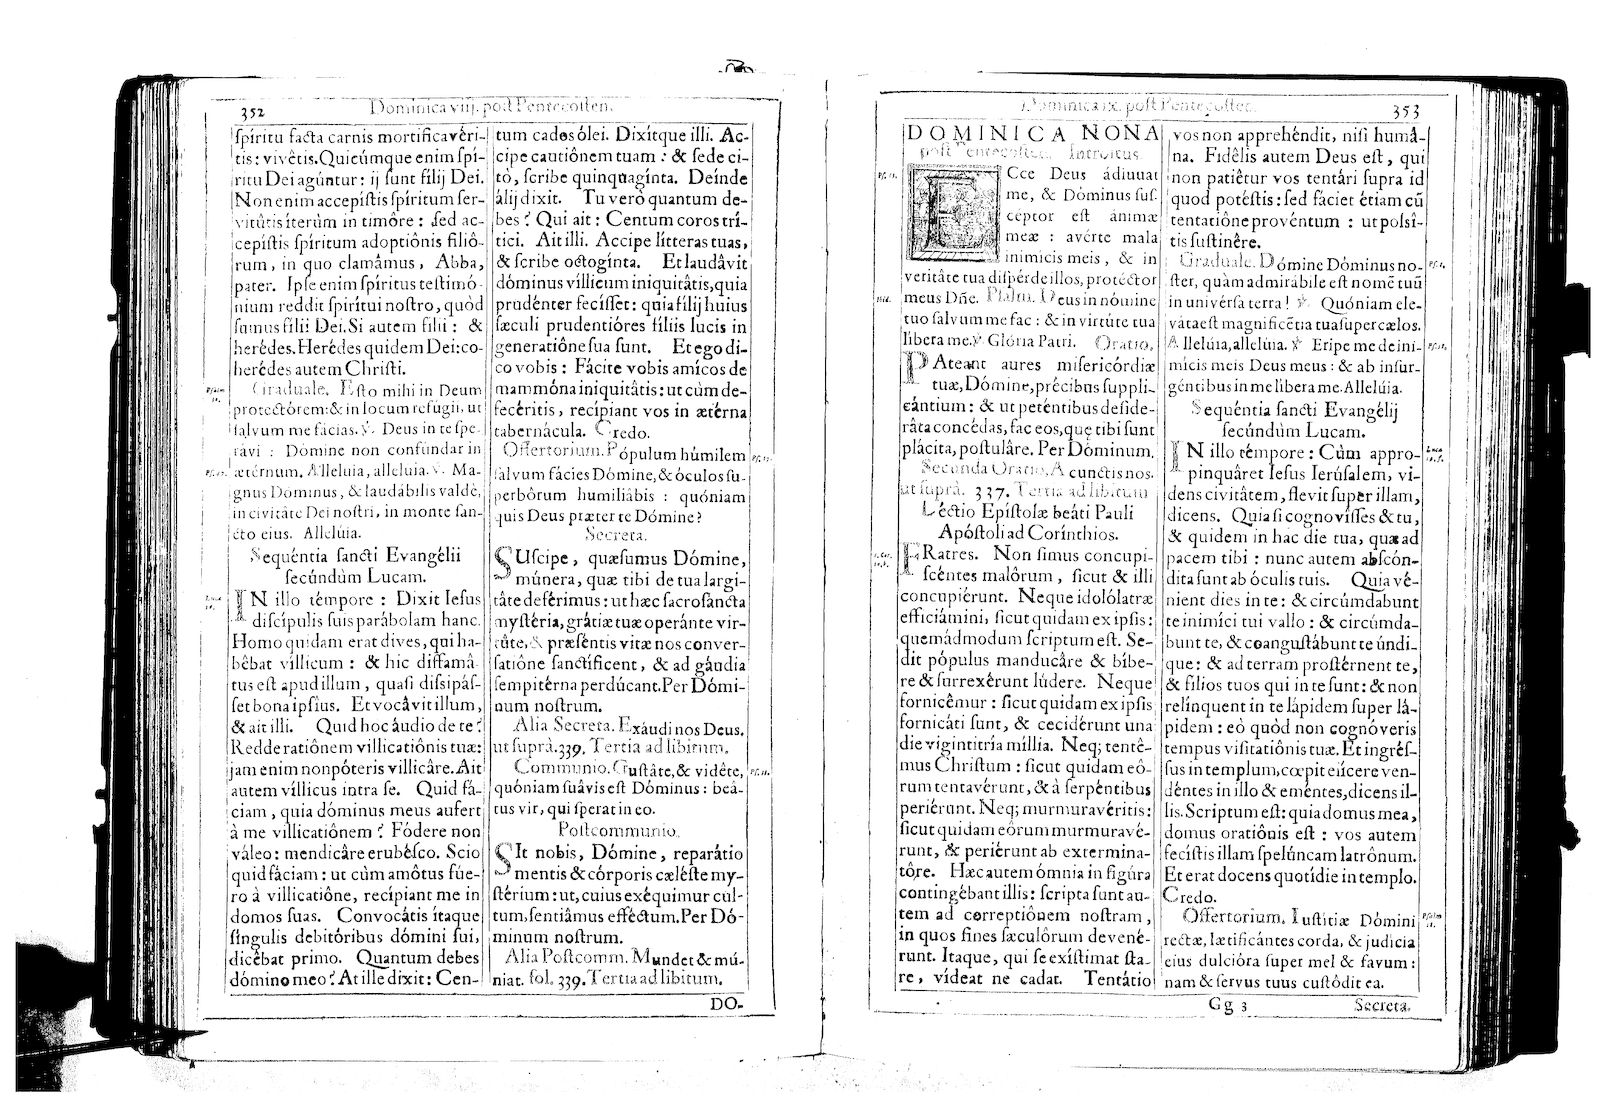 352
Dominica viij. post Pentecosten.
ſpíritu facta carnis mortificavéri-
tis: vivêtis. Quicúmque enim ſpí-
ritu Dei agúntur: ij ſunt filij Dei.
Non enim accepíſtis ſpíritum ſer-
vitûtis íterùm in timôre: ſed ac-
cepíſtis ſpíritum adoptiônis filiô-
rum, in quo clamâmus, Abba,
pater. Ipſe enim ſpíritus teſtimó-
nium reddit ſpirítui noſtro, quòd
ſumus filii Dei. Si autem filii: &
herédes. Herédes quidem Dei: co-
herédes autem Chriſti.
Graduale. Eſto mihi in Deum
protectórem: & in locum refugii, ut
ſalvum me fácias. ℣. Deus in te ſpe-
rávi: Dómine non confúndar in
ætérnum. Alleluia, alleluia. ℣. Ma-
gnus Dóminus, & laudábilis valdè,
in civitâte Dei noſtri, in monte ſan-
cto eius. Alleluia.
Sequéntia ſancti Evangélii
ſecúndùm Lucam.
IN illo témpore: Dixit Ieſus
diſcípulis ſuis parábolam hanc.
Homo quidam erat dives, qui ha-
bêbat víllicum: & hic diffamâ-
tus eſt apud illum, quaſi diſsipáſ-
ſet bona ipſíus. Et vocâvit illum,
& ait illi. Quid hoc áudio de te?
Redde ratiônem villicatiônis tuæ:
jam enim non póteris villicâre. Ait
autem víllicus intra ſe. Quid fá-
ciam, quia dóminus meus aufert
à me villicatiônem? Fódere non
váleo: mendicâre erubéſco. Scio
quid fáciam: ut cùm amôtus fúe-
ro à villicatiône, recípiant me in
domos ſuas. Convocâtis ítaque
ſíngulis debitóribus dómini ſui,
dicêbat primo. Quantum debes
dómino meo? At ille dixit: Cen-
tum cados ólei. Dixítque illi. Ac-
cipe cautiônem tuam: & ſede ci-
tò, ſcribe quinquagínta. Deínde
álij dixit. Tu verò quantum de-
bes? Qui ait: Centum coros trí-
tici. Ait illi. Accipe lítteras tuas,
& ſcribe octogínta. Et laudâvit
dóminus víllicum iniquitâtis, quia
prudénter feciſſet: quia filij huius
ſæculi prudentióres fíliis lucis in
generatiône ſua ſunt. Et ego di-
co vobis: Fácite vobis amícos de
mammóna iniquitâtis: ut cùm de-
fecéritis, recípiant vos in ætérna
tabernácula. Credo.
Offertorium. Pópulum húmilem
ſalvum fácies Dómine, & óculos ſu-
perbórum humiliábis: quóniam
quis Deus præter te Dómine?
Secreta.
SUſcipe, quæſumus Dómine,
múnera, quæ tibi de tua largi-
tâte deférimus: ut hæc ſacroſancta
myſtéria, grátiæ tuæ operánte vir-
tûte, & præſéntis vitæ nos conver-
ſatiône ſanctíficent, & ad gáudia
ſempitérna perdúcant. Per Dómi-
num noſtrum.
Alia Secreta. Exáudi nos Deus.
ut ſuprà. 339. Tertia ad libitum.
Communio. Guſtâte, & vidête,
quóniam ſuâvis eſt Dóminus: beá-
tus vir, qui ſperat in eo.
Poſtcommunio.
SIt nobis, Dómine, reparátio
mentis & córporis cæléſte my-
ſtérium: ut, cuius exéquimur cúl-
tum, ſentiâmus efféctum. Per Dó-
minum noſtrum.
Alia Poſtcomm. Mundet & mú-
niat. fol. 339. Tertia ad libitum.
DO-
Dominica ix. poſt Pentecoſten.
353
DOMINICA NONA
poſt Pentecoſten. Introitus.
ECce Deus ádiuuat
me, & Dóminus ſuſ-
céptor eſt ánimæ
meæ: avérte mala
inimícis meis, & in
veritâte tua diſpérde illos, protéctor
meus Dñe. Pſalm. Deus in nómine
tuo ſalvum me fac: & in virtûte tua
líbera me. ℣. Glória Patri. Oratio.
PAteant aures miſericórdiæ
tuæ, Dómine, précibus ſuppli-
cántium: & ut peténtibus deſide-
râta concédas, fac eos, quę tibi ſunt
plácita, poſtulâre. Per Dóminum.
Secunda Oratio. A cunctis nos.
ut ſuprà. 337. Tertia ad libitum
Léctio Epíſtolæ beáti Pauli
Apóſtoli ad Corínthios.
FRatres. Non ſimus concupi-
ſcéntes malôrum, ſicut & illi
concupiérunt. Neque idololátræ
efficiámini, ſicut quidam ex ipſis:
quemádmodum ſcriptum eſt. Se-
dit pópulus manducâre & bíbe-
re & ſurrexérunt lúdere. Neque
fornicêmur: ſicut quidam ex ipſis
fornicáti ſunt, & cecidérunt una
die vigintitría míllia. Neq; tenté-
mus Chriſtum: ſicut quidam eô-
rum tentavérunt, & à ſerpéntibus
periérunt. Neq; murmuravéritis:
ſicut quidam eôrum murmuravé-
runt, & periérunt ab extermina-
tôre. Hæc autem ómnia in figúra
contingébant illis: ſcripta ſunt au-
tem ad correptiônem noſtram,
in quos fines ſæculôrum devené-
runt. Itaque, qui ſe exíſtimat ſta-
re, vídeat ne cadat. Tentátio
vos non apprehéndit, niſi humâ-
na. Fidêlis autem Deus eſt, qui
non patiêtur vos tentári ſupra id
quod potéſtis: ſed fáciet étiam cũ
tentatiône provéntum: ut poſsí-
tis ſuſtinêre.
Graduale. Dómine Dóminus no-
ſter, quàm admirábile eſt nomẽ tuũ
in univérſa terra! ℣. Quóniam ele-
váta eſt magnificẽtia tua ſuper cælos.
Alleluia, alleluia. ℣. Eripe me de ini-
mícis meis Deus meus: & ab inſur-
géntibus in me líbera me. Alleluia.
Sequéntia ſancti Evangélij
ſecúndùm Lucam.
IN illo témpore: Cùm appro-
pinquâret Ieſus Ierúſalem, vi-
dens civitâtem, flevit ſuper illam,
dicens. Quia ſi cognoviſſes & tu,
& quidem in hac die tua, quæ ad
pacem tibi: nunc autem abſcón-
dita ſunt ab óculis tuis. Quia vé-
nient dies in te: & circúmdabunt
te inimíci tui vallo: & circúmda-
bunt te, & coanguſtábunt te úndi-
que: & ad terram proſtérnent te,
& filios tuos qui in te ſunt: & non
relínquent in te lápidem ſuper lá-
pidem: eò quòd non cognóveris
tempus viſitatiônis tuæ. Et ingréſ-
ſus in templum, cœpit eiícere ven-
déntes in illo & eméntes, dicens il-
lis. Scriptum eſt: quia domus mea,
domus oratiônis eſt: vos autem
fecíſtis illam ſpelúncam latrônum.
Et erat docens quotídie in templo.
Credo.
Offertorium. Iuſtítiæ Dómini
rectæ, lætificántes corda, & judícia
eius dulcióra ſuper mel & favum:
nam & ſervus tuus cuſtódit ea.
Gg 3
Secreta.